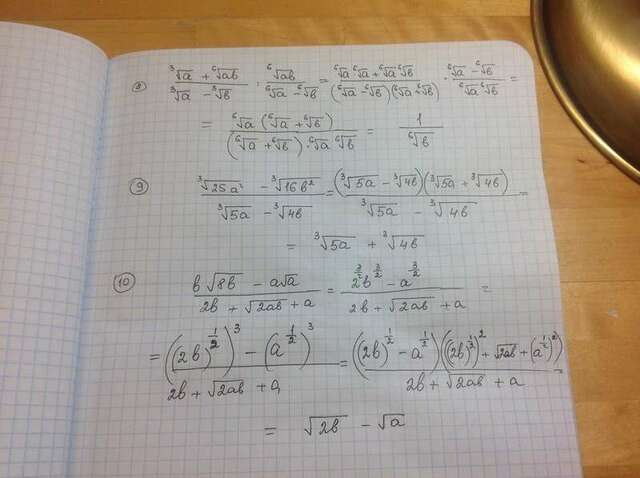 8) (∛a + ⁶√ab)/(∛a − ∛b) · ⁶√ab/(⁶√a − ⁶√b) = (⁶√a ⁶√a + ⁶√a ⁶√b)/((⁶√a − ⁶√b)(⁶√a + ⁶√b)) · (⁶√a − ⁶√b)/(⁶√a ⁶√b) =
= ⁶√a (⁶√a + ⁶√b)/((⁶√a + ⁶√b) · ⁶√a ⁶√b) = 1/⁶√b
9) (∛25a² − ∛16b²)/(∛5a − ∛4b) = (∛5a − ∛4b)(∛5a + ∛4b)/(∛5a − ∛4b) =
= ∛5a + ∛4b
10) (b√8b − a√a)/(2b + √2ab + a) = (2^(3/2) b^(3/2) − a^(3/2))/(2b + √2ab + a) =
= (((2b)^(1/2))³ − (a^(1/2))³)/(2b + √2ab + a) = ((2b)^(1/2) − a^(1/2))(((2b)^(1/2))² + √2ab + (a^(1/2))²)/(2b + √2ab + a)
= √2b − √a